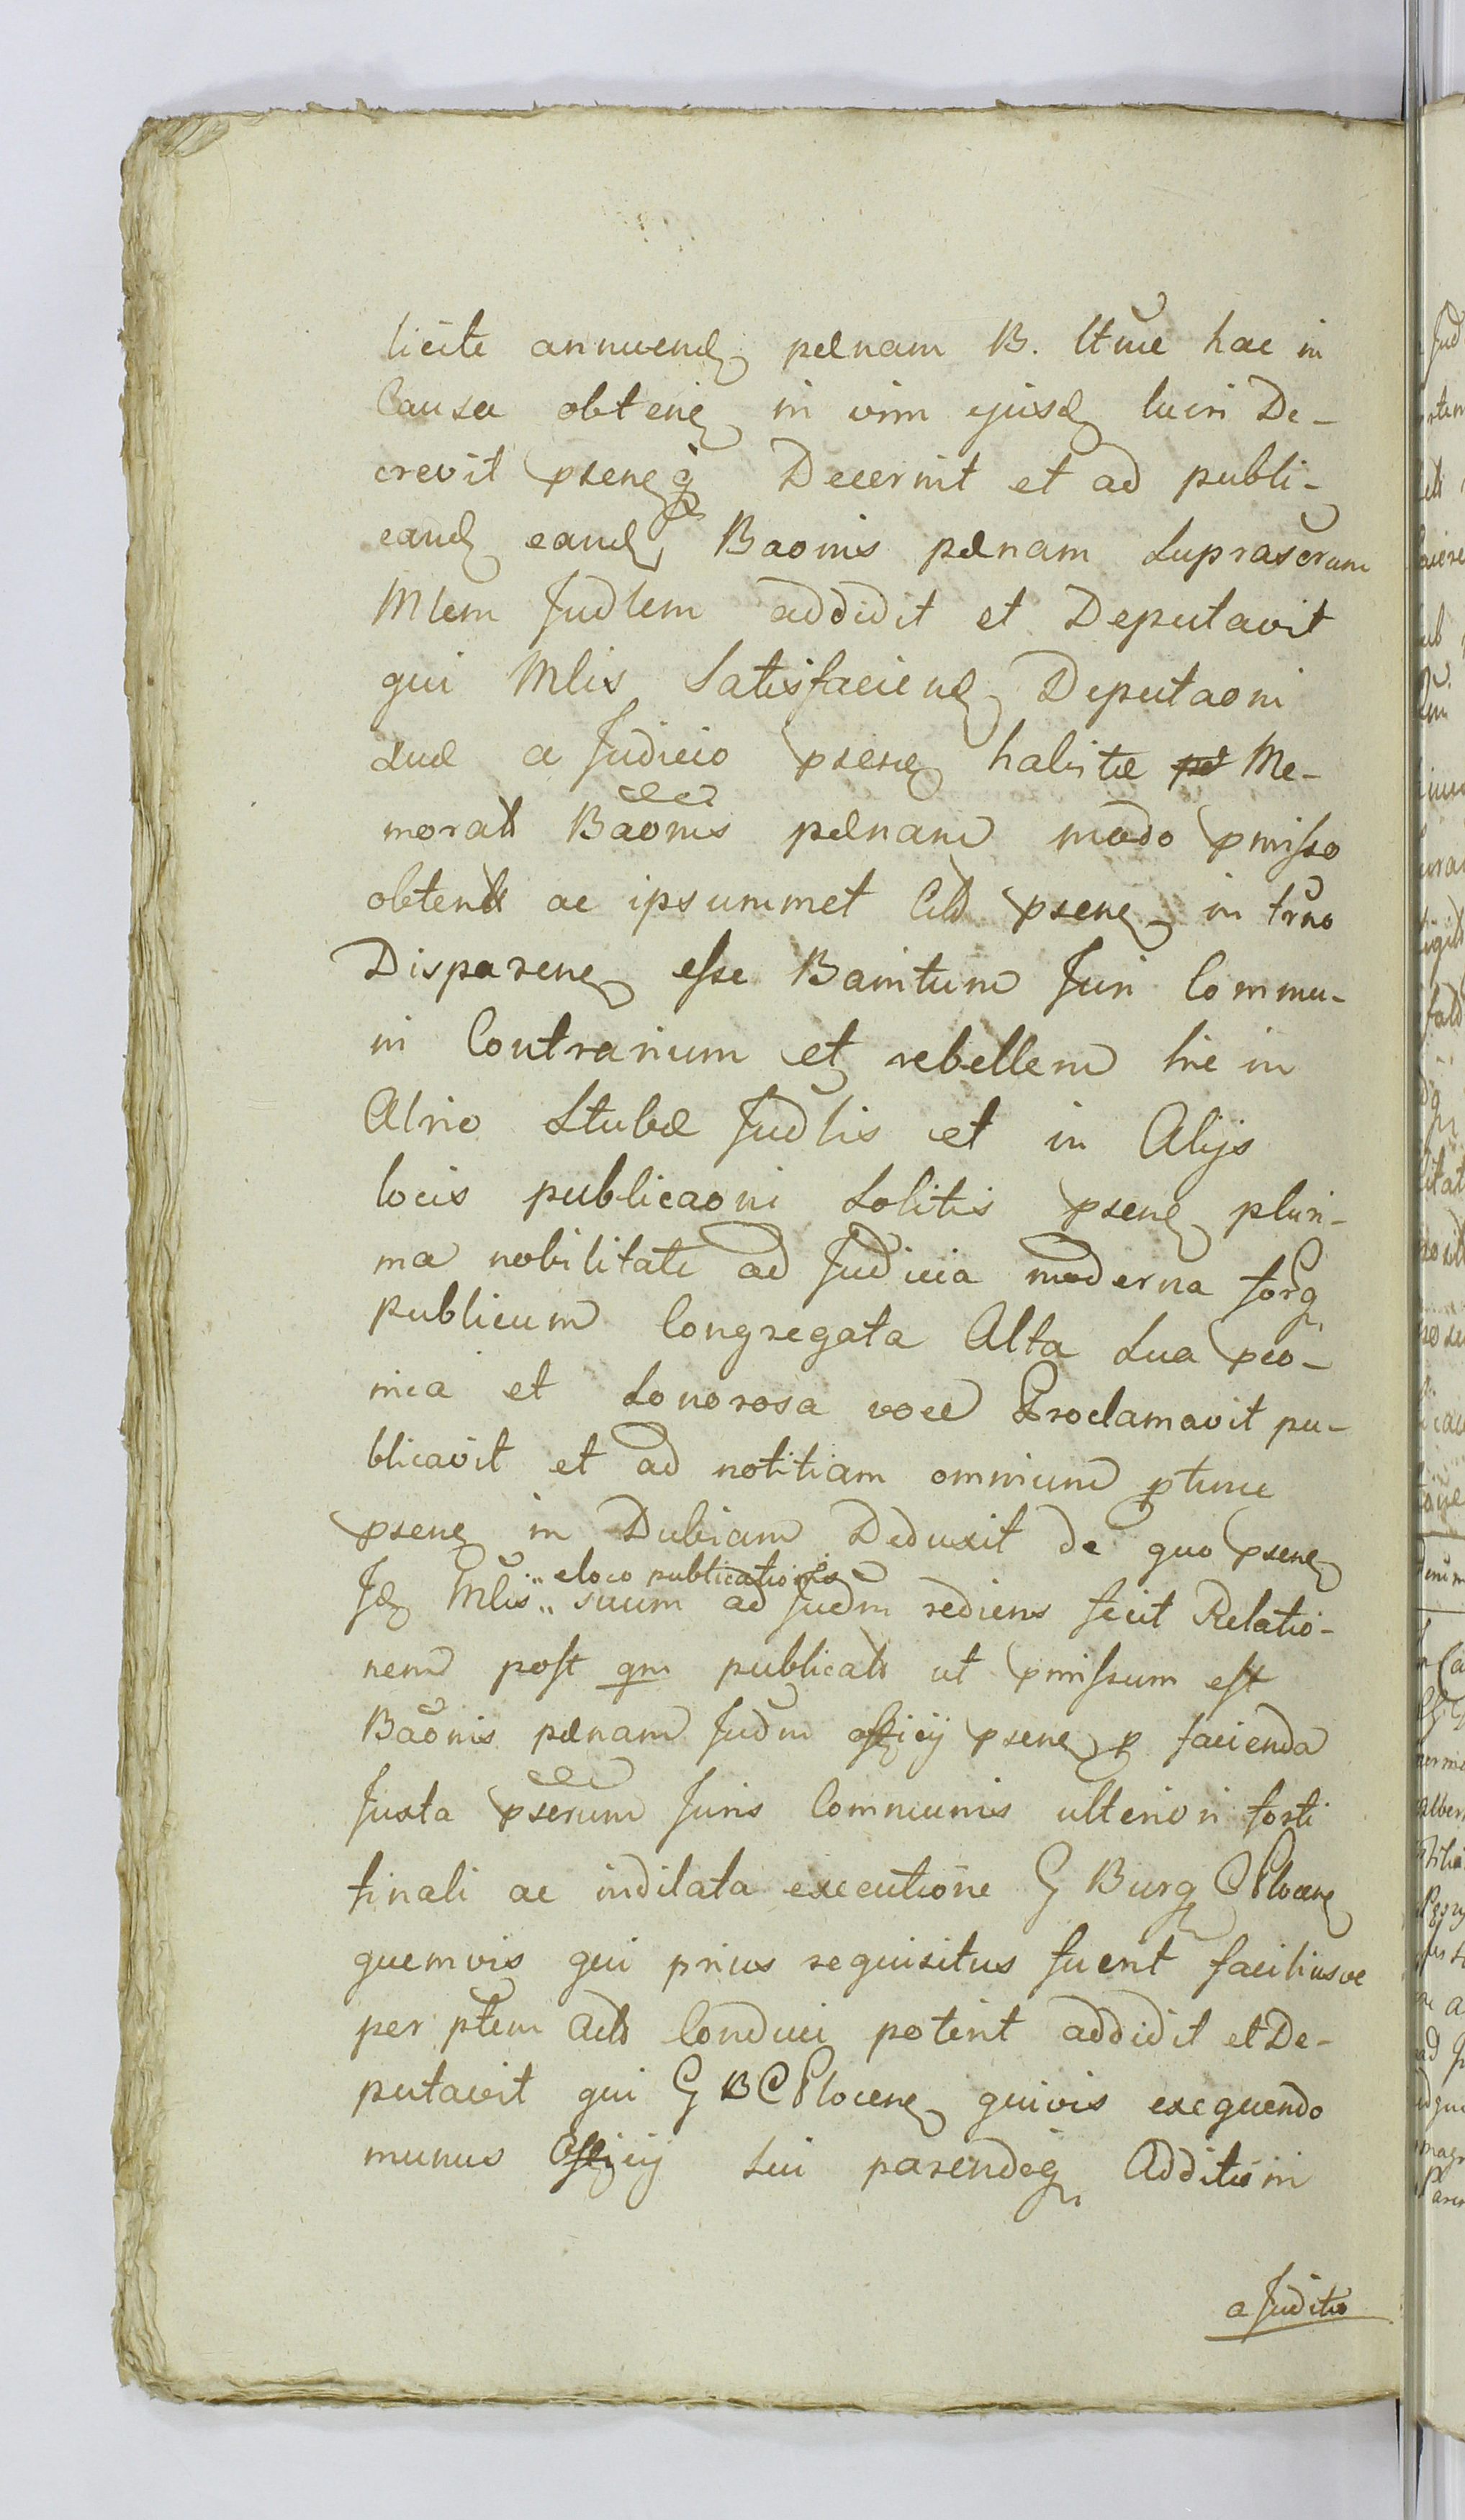 licite annuend pænam B. ltme hac in
Causa obtene in vim ejusd lucri De-
crevit psenq Decernit et ad publi-
cand eand Baonis pænam suprascram
Mlem Judlem addidit et Deputavit
qui Mlis Satisfaciend Deputaoni
suæ a Judicio psene habitæ Me-
morats Baonis pænam modo pmisso
obtents ac ipsummet Citd psene in trno
Disparene esse Banitum Juri Commu-
ni Contrarium et rebellem hic in
Atrio Stubæ Judlis et in Alijs
locis publicaoni Solitis psene pluri-
ma nobilitate ad Judicia moderna forq
publicum Congregata Alta sua pco-
nica et Sonorosa voce Proclamavit pu-
blicavit et ad notitiam omnium ptunc
psene in Dubiam Deduxit de quo psene
Id Mlis .. eloco publicationis .. suum ad Judm rediens fecit Relatio-
nem post qm publicats ut pmissum est
Baonis pænam Judm officij psene p facienda
Juxta pscrum Juris Communis ulteriori forti
finali ac indilata executione G Burg C Plocene
quemvis qui prius requisitus fuerit faciliusve
per ptem Acts Conduci poterit addidit et De-
putavit qui G B C Plocene quivis exequendo
munus Officij Sui parendoq Additioni
a Juditio